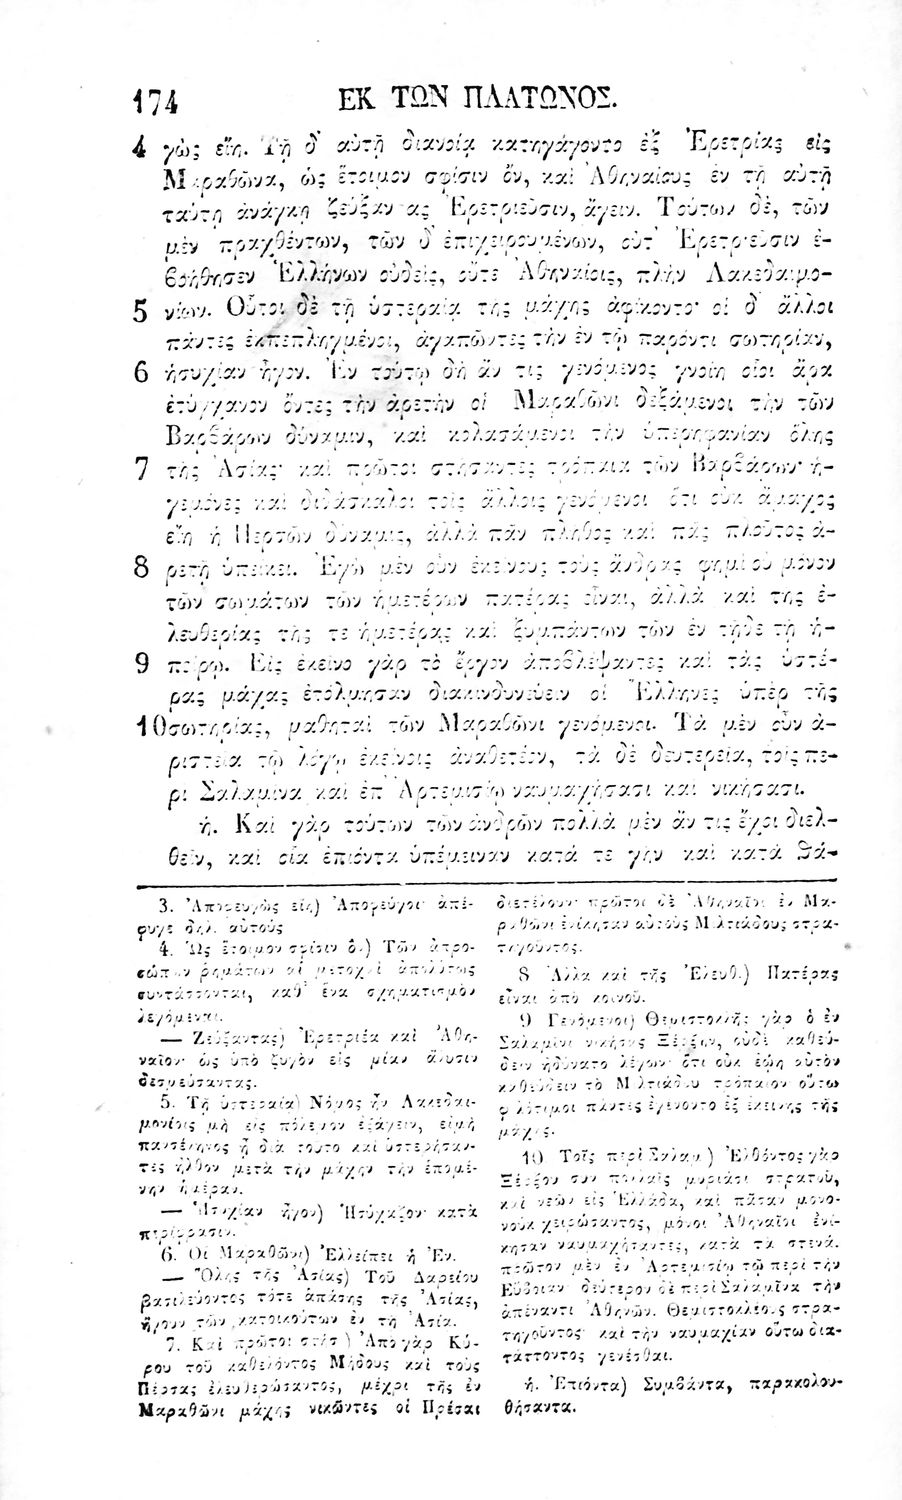 174 ΕΚ ΤΩΝ ΠΛΑΤΩΝΟΣ.
4 γὼς εἴη. Τῇ δ' αὐτῇ διανοίᾳ κατηγάγοντο ἐξ Ἐρετρίας εἰς
Μαραθῶνα, ὡς ἕτοιμον σφίσιν ὄν, καὶ Ἀθηναίους ἐν τῇ αὐτῇ
ταύτῃ ἀνάγκῃ ζεύξαντας Ἐρετριεῦσιν, ἄγειν. Τούτων δέ, τῶν
μὲν πραχθέντων, τῶν δ' ἐπιχειρουμένων, οὔτ' Ἐρετριεῦσιν ἐ-
βοήθησεν Ἑλλήνων οὐδεὶς, οὔτε Ἀθηναίοις, πλὴν Λακεδαιμο-
5 νίων. Οὗτοι δὲ τῇ ὑστεραίᾳ τῆς μάχης ἀφίκοντο· οἱ δ' ἄλλοι
πάντες ἐκπεπληγμένοι, ἀγαπῶντες τὴν ἐν τῷ παρόντι σωτηρίαν,
6 ἡσυχίαν ἦγον. Ἐν τούτῳ δὴ ἄν τις γενόμενος γνοίη οἷοι ἄρα
ἐτύγχανον ὄντες τὴν ἀρετὴν οἱ Μαραθῶνι δεξάμενοι τὴν τῶν
Βαρβάρων δύναμιν, καὶ κολασάμενοι τὴν ὑπερηφανίαν ὅλης
7 τῆς Ἀσίας· καὶ πρῶτοι στήσαντες τρόπαια τῶν Βαρβάρων· ἡ-
γεμόνες καὶ διδάσκαλοι τοῖς ἄλλοις γενόμενοι ὅτι οὐκ ἄμαχος
εἴη ἡ Περσῶν δύναμις, ἀλλὰ πᾶν πλῆθος καὶ πᾶς πλοῦτος ἀ-
8 ρετῇ ὑπείκει. Ἐγὼ μὲν οὖν ἐκείνους τοὺς ἄνδρας φημὶ οὐ μόνον
τῶν σωμάτων τῶν ἡμετέρων πατέρας εἶναι, ἀλλὰ καὶ τῆς ἐ-
λευθερίας τῆς τε ἡμετέρας καὶ ξυμπάντων τῶν ἐν τῇδε τῇ ἠ-
9 πείρῳ. Εἰς ἐκεῖνο γὰρ τὸ ἔργον ἀποβλέψαντες καὶ τὰς ὑστέ-
ρας μάχας ἐτόλμησαν διακινδυνεύειν οἱ Ἕλληνες ὑπὲρ τῆς
10 σωτηρίας, μαθηταὶ τῶν Μαραθῶνι γενόμενοι. Τὰ μὲν οὖν ἀ-
ριστεῖα τῷ λόγῳ ἐκείνοις ἀναθετέον, τὰ δὲ δευτερεῖα, τοῖς πε-
ρὶ Σαλαμῖνα καὶ ἐπ' Ἀρτεμισίῳ ναυμαχήσασι καὶ νικήσασι.
ή. Καὶ γὰρ τούτων τῶν ἀνδρῶν πολλὰ μὲν ἄν τις ἔχοι διελ-
θεῖν, καὶ οἷα ἐπιόντα ὑπέμειναν κατά τε γῆν καὶ κατὰ θά-
3. Ἀποπευγὼς εἴη) Ἀποφεύγοι· ἀπέ-
φυγε δηλ. αὐτοὺς
4. Ὡς ἕτοιμον σφίσιν ὂ.) Τῶν ἀπρο-
σώπων ῥημάτων αἱ μετοχαὶ ἀπολύτως
συντάσσονται, καθ' ἕνα σχηματισμὸν
λεγόμεναι.
— Ζεύξαντας) Ἐρετριέα καὶ Ἀθη-
ναῖον· ὡς ὑπὸ ζυγὸν εἰς μίαν ἅλυσιν
δεσμεύσαντας.
5. Τῇ ὑστεραίᾳ) Νόμος ἦν Λακεδαι-
μονίοις μὴ εἰς πόλεμον ἐξάγειν, εἰμὴ
πανσέληνος ᾖ διὰ τοῦτο καὶ ὑστερήσαν-
τες ἦλθον μετὰ τὴν μάχην τὴν ἐπομέ-
νην ἡμέραν.
— Ἡσυχίαν ἦγον) Ἡσύχαζον· κατὰ
περίφρασιν.
6. Οἱ Μαραθῶνι) Ἐλλείπει ἡ Ἐν.
— Ὅλης τῆς Ἀσίας) Τοῦ Δαρείου
βασιλεύοντος τότε ἁπάσης τῆς Ἀσίας,
ἤγουν τῶν κατοικούτων ἐν τῇ Ἀσίᾳ.
7. Καὶ πρῶτοι στήσ.) Ἀπὸ γὰρ Κύ-
ρου τοῦ καθελόντος Μήδους καὶ τοὺς
Πέρσας ἐλευθερώσαντος, μέχρι τῆς ἐν
Μαραθῶνι μάχης νικῶντες οἱ Πρέσαι
διετέλουν· πρῶτοι δὲ Ἀθηναῖοι ἐν Μα-
ραθῶνι ἐνίκησαν αὐτοὺς Μιλτιάδους στρα-
τηγοῦντος.
8 Ἀλλὰ καὶ τῆς Ἐλευθ.) Πατέρας
εἶναι ἀπὸ κοινοῦ.
9 Γενόμενοι) Θεμιστοκλῆς γὰρ ὁ ἐν
Σαλαμῖνι νικήσας Ξέρξην, οὐδὲ καθεύ-
δειν ἠδύνατο λέγων· ὅτι οὐκ ἐώη αὐτὸν
καθεύδειν τὸ Μιλτιάδου τρόπαιον οὕτω
φιλότιμοι πάντες ἐγένοντο ἐξ ἐκείνης τῆς
μάχης.
10 Τοῖς περὶ Σαλαμ.) Ἐλθόντος γὰρ
Ξέρξου σὺν πολλαῖς μυριάσι στρατοῦ,
καὶ νεῶν εἰς Ἑλλάδα, καὶ πᾶσαν μονο-
νοὺκ χειρώσαντος, μόνοι Ἀθηναῖοι ἐνί-
κησαν ναυμαχήσαντες, κατὰ τὰ στενά.
πρῶτον μὲν ἐν Ἀρτεμισίῳ τῷ περὶ τὴν
Εὔβοιαν· δεύτερον δὲ περὶ Σαλαμῖνα τὴν
ἀπέναντι Ἀθηνῶν. Θεμιστοκλέους στρα-
τηγοῦντος· καὶ τὴν ναυμαχίαν οὕτω δια-
τάττοντος γενέσθαι.
ή. Ἐπιόντα) Συμβάντα, παρακολου-
θήσαντα.